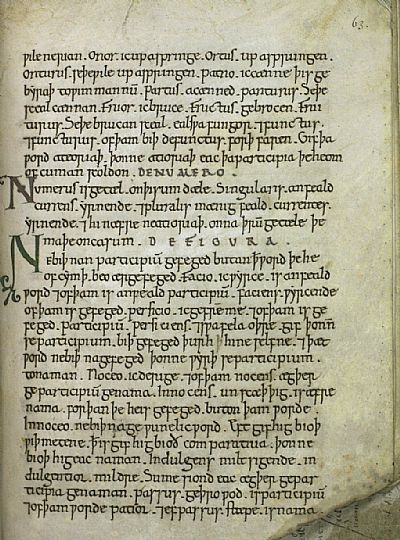 63.
wile nerian . Orior . ic up aspringe . Ortus . up asprungen .
Oriturus . se þe wile up aspringen . Pario . ic cænne þis ge
byraþ to wimmannū . Partus . acænned . pariturus . Se þe
sceal cænnan . Fruor . ic bruce . Fructus . gebrocen . Frui
turus . Se þe brucan sceal . ealswa fungor . functus .
functurus . of ðam biþ defunctus . forþfaren . Gif þa
word ateoriaþ . þonne ateoriaþ eac þa participia þe heom
of cuman sceoldon . DE NUMERO .
Numerus is getæl . on þisum dæle . Singularis . anfeald
currens . yrnende . 7 pluralis mænigfeald . currentes .
yrnende . þe
ma þe on casum . DE FIGURA .
Ne biþ nan participiū gefeged butan þ word þe he
of cymþ . beo ær gefeged . Facio . ic wyrce . is anfeald
word 7 of ðam is anfeald participiū . faciens . wyrcende
of ðam is gefeged . perficio . ic gefremme . 7 of ðam is ge
feged . participiū . perficiens . 7 swa fela oþre . gif þonne
se participium . biþ gefeged þurh hine selfne . 7 þæt
word ne biþ na gefeged þonne ne byþ he na participium .
to naman . Noceo . ic derige . 7 of ðam nocens . ægþer
ge participiū ge nama . Innocens . unsceæþþig . is æfre
nama . forþan þe he is gefeged . buton þam worde .
Innoceo . ne biþ nage þunelic word . Eft gif hig beoþ
wiþmetene . þis gif hig biod comparatiua . þonne
beoþ hig eac naman . Indulgens miltsigende . in
dulgentior . mildre . Sume synd eac ægþer ge par
ticipia ge naman . passus . geþrowod . is participiū
7 of ðam worde patior . 7 eft passus . stæpe . is nama .